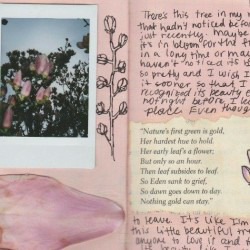 There's this tree in my
that hadn't noticed before
just recently. maybe
it's in bloom for the
in a long time or may
haven't noticed its
so pretty and I wish
it sooner so that I
recognized its beauty
not right before, I le
place. Even though
"Nature's first green is gold,
Her hardest hue to hold.
Her early leaf's a flower;
But only so an hour.
Then leaf subsides to leaf.
So Eden sank to grief,
So dawn goes down to day.
Nothing gold can stay."
to leave. It's like I'm
this little beautiful tree
anyone to love it and